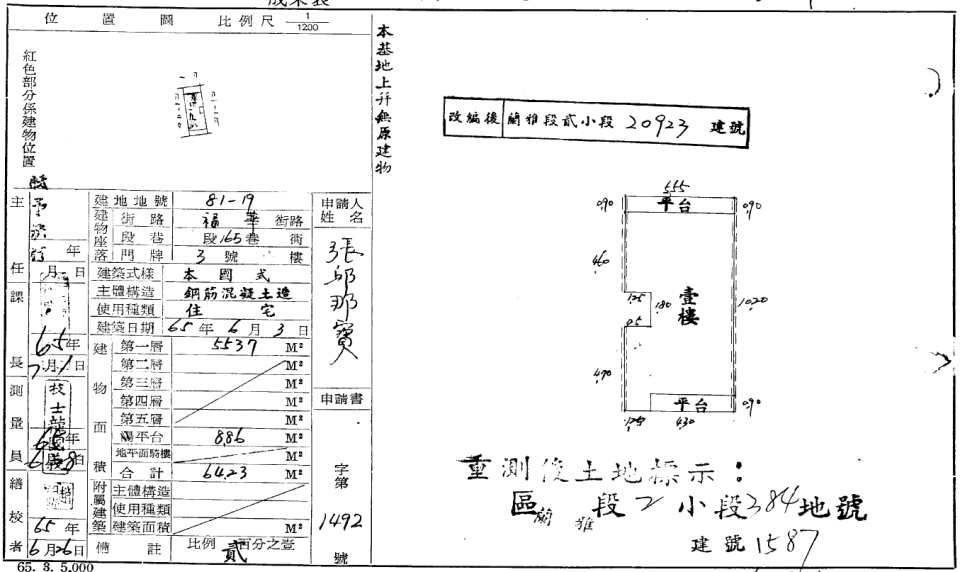 位置圖 比例尺 1/1200
紅色部分係建物位置
本基地上并無原建物
改編後 蘭雅段貳小段 20923 建號
主任課長
65年7月1日
測量員
技士
65年6月8日
繕校者
65年6月26日
建地地號 81-19
建物座落
街路 福華街路
段巷 段165巷 衖
門牌 3號 樓
建築式樣 本國式
主體構造 鋼筋混凝土造
使用種類 住宅
建築日期 65年6月3日
建物面積
第一層 55.37 M²
第二層 M²
第三層 M²
第四層 M²
第五層 M²
陽平台 8.86 M²
地平面騎樓 M²
合計 64.23 M²
附屬建築
主體構造
使用種類
建築面積 M²
備註 比例 貳百分之壹
申請人姓名
申請書
字第
1492
號
5.55
平台
0.90
0.90
4.60
1.25
1.80
壹樓
10.20
4.70
平台
0.90
1.25
4.30
重測後土地標示：
區蘭雅段2小段384地號
建號1587
65. 3. 5,000